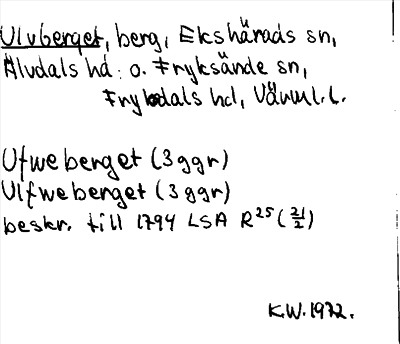 Ulvberget, berg, Ekshärads sn,
Älvdals hd. o. Fryksände sn,
Fryksdals hd, Värml. l.
Ufweberget (3 ggr)
Ulfweberget (3 ggr)
beskr. till 1794 LSA R25 (21/2)
K.W. 1972.